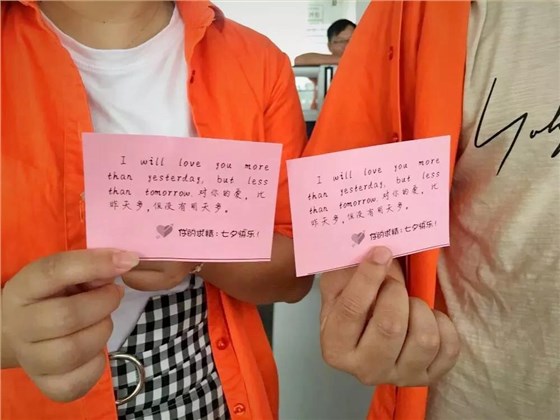 I will love you more
than yesterday, but less
than tomorrow.对你的爱，比
昨天多，但没有明天多。
你的求精：七夕快乐！
I will love you more
than yesterday, but less
than tomorrow.对你的爱，比
昨天多，但没有明天多。
你的求精：七夕快乐！